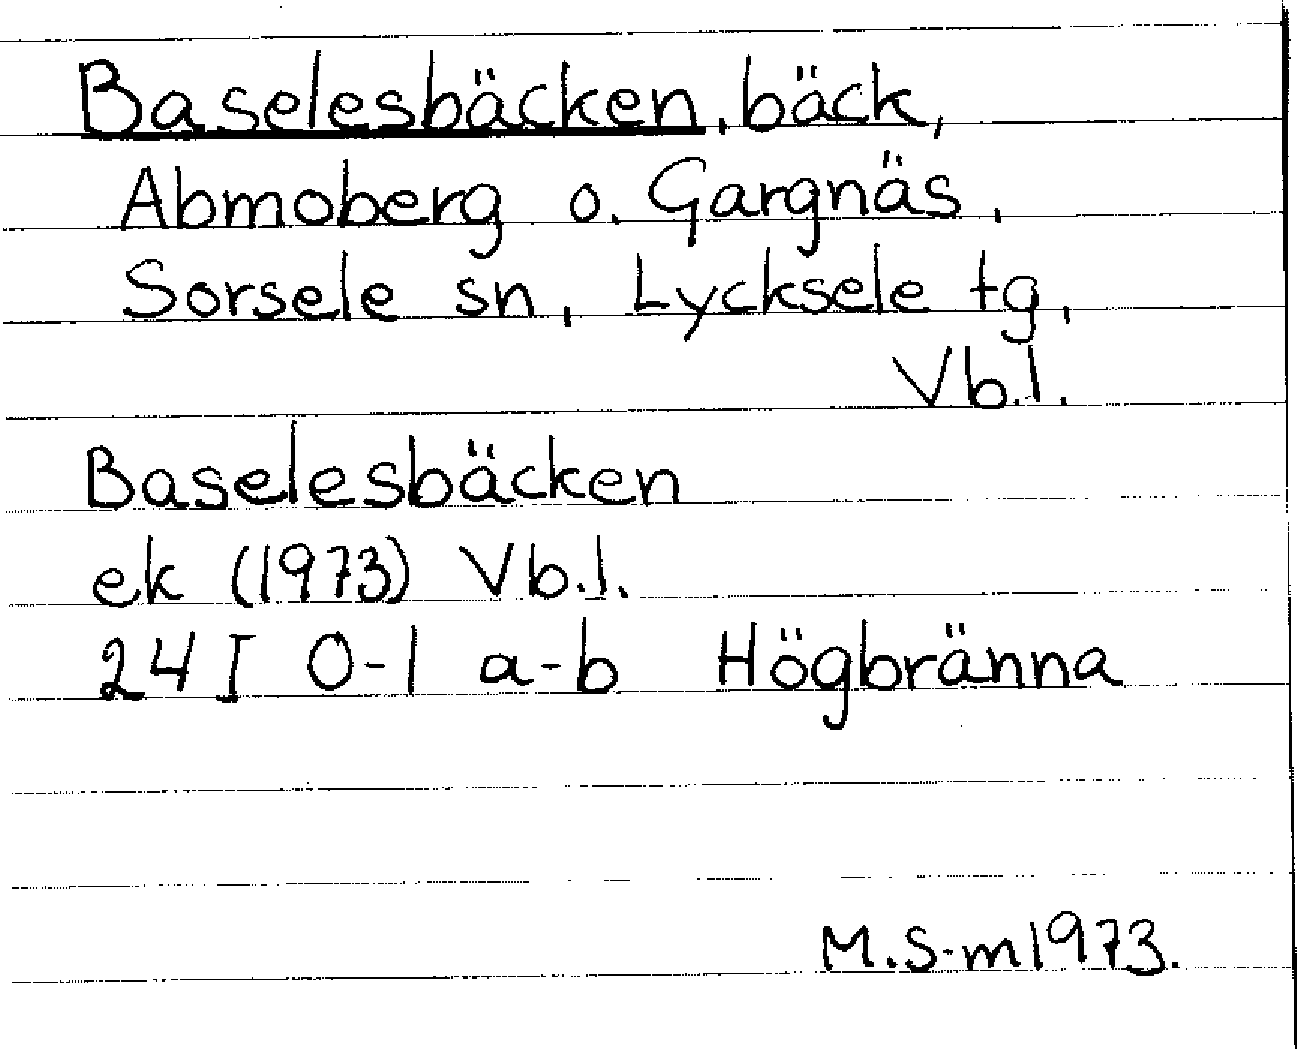 Baselesbäcken, bäck,
Abmoberg o. Gargnäs,
Sorsele sn, Lycksele tg,
Vb.l.
Baselesbäcken
ek (1973) Vb.l.
24 I 0-1 a-b Högbränna
M.S-m 1973.